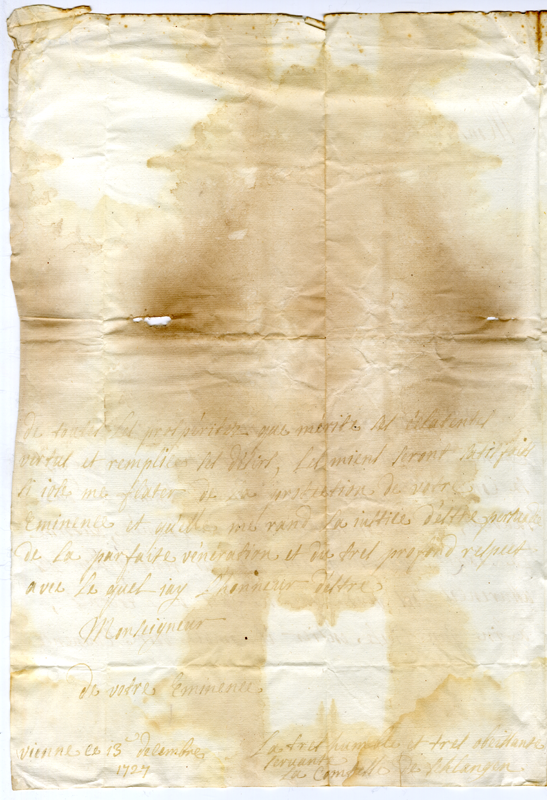 de toutes les prosperites que merite ses éclatentes
vertus et remplisse ses désirs, les miens seront satisfais
si iose me flater de la protection de votre
Eminence et quelle me rand la iustice d'estre persua
de la parfaite vénération et du tres profond respect
avec le quel jay l'honneur destre
Monseigneur
de votre Eminence
vienne ce 13e decembre
1727
La tres humble et tres obeissante
servante
la Comtesse de